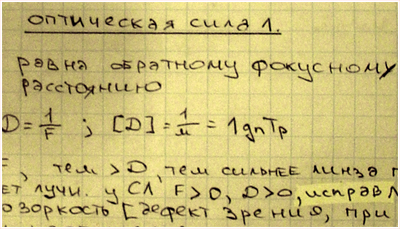 оптическая сила л.
равна обратному фокусному
расстоянию
D = 1/F ; [D] = 1/м = 1 дптр
F, тем > D, тем сильнее линза п
ет лучи. у СЛ F>0, D>0, исправл
озоркость [дефект зрения, при